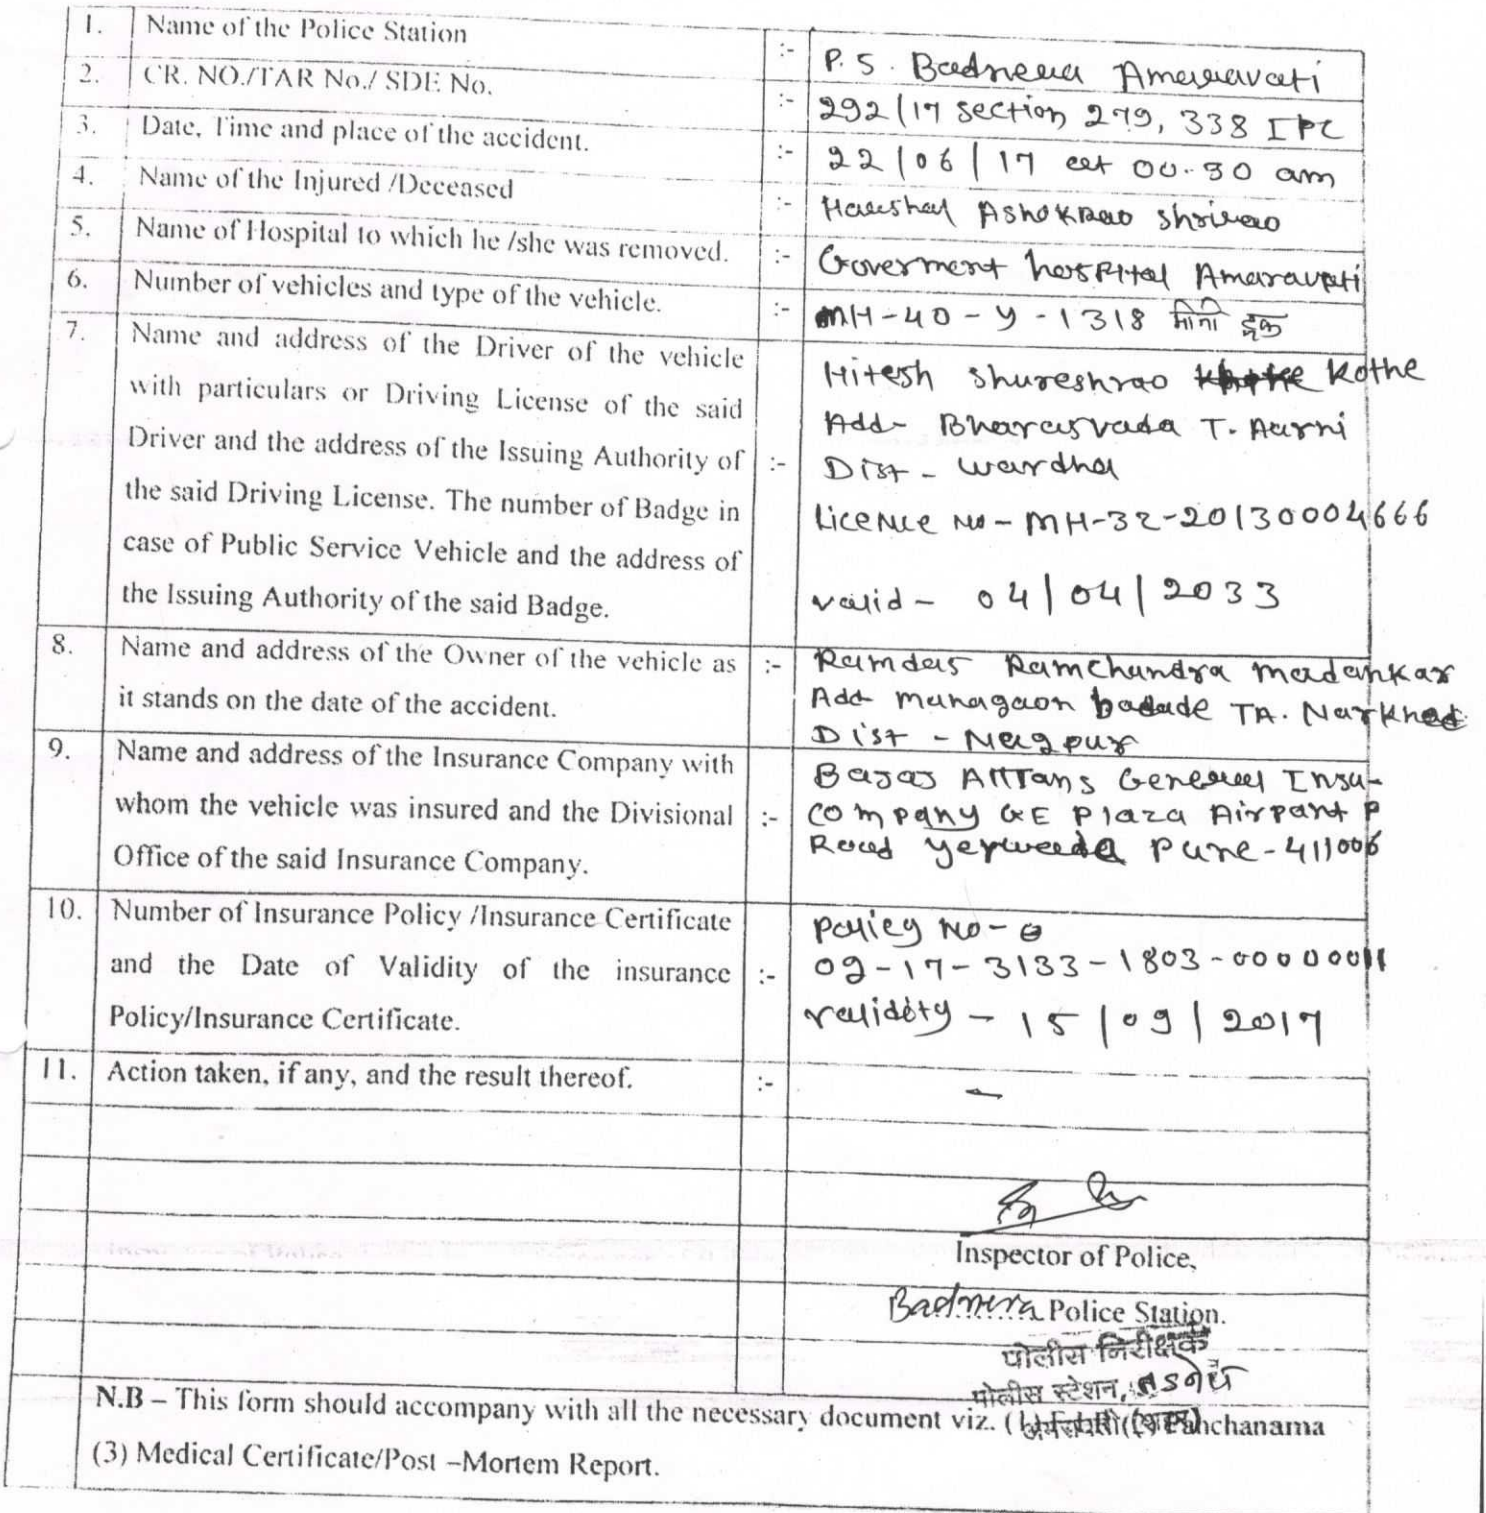 1. Name of the Police Station :- P. S. Badnera Amaravati
2. CR. NO./TAR No./ SDE No. :- 292/17 section 279, 338 IPC
3. Date, Time and place of the accident. :- 22/06/17 at 00.30 am
4. Name of the Injured /Deceased :- Harshal Ashokrao Shrirao
5. Name of Hospital to which he /she was removed. :- Goverment hospital Amaravati
6. Number of vehicles and type of the vehicle. :- MH-40-Y-1318 मीनी ट्रक
7. Name and address of the Driver of the vehicle
with particulars or Driving License of the said
Driver and the address of the Issuing Authority of
the said Driving License. The number of Badge in
case of Public Service Vehicle and the address of
the Issuing Authority of the said Badge.
:-
Hitesh Shureshrao Kothe
Add- Bharasvada T. Aarni
Dist - wardha
Licence No - MH-32-20130004666
valid - 04/04/2033
8. Name and address of the Owner of the vehicle as
it stands on the date of the accident.
:-
Ramdas Ramchandra Madankar
Add- managaon TA. Narkhed
Dist - Nagpur
9. Name and address of the Insurance Company with
whom the vehicle was insured and the Divisional
Office of the said Insurance Company.
:-
Bajaj Allians General Insu-
Company GE Plaza Airpart P
Road yerwada Pune-411006
10. Number of Insurance Policy /Insurance Certificate
and the Date of Validity of the insurance
Policy/Insurance Certificate.
:-
Policy No -
09-17-3133-1803-00000011
validity - 15/09/2017
11. Action taken, if any, and the result thereof. :- -
Inspector of Police,
Badnera Police Station.
पोलीस निरीक्षक
पोलीस स्टेशन, बडनेरा
अमरावती (शहर)
N.B – This form should accompany with all the necessary document viz. (1) Panchanama
(3) Medical Certificate/Post –Mortem Report.